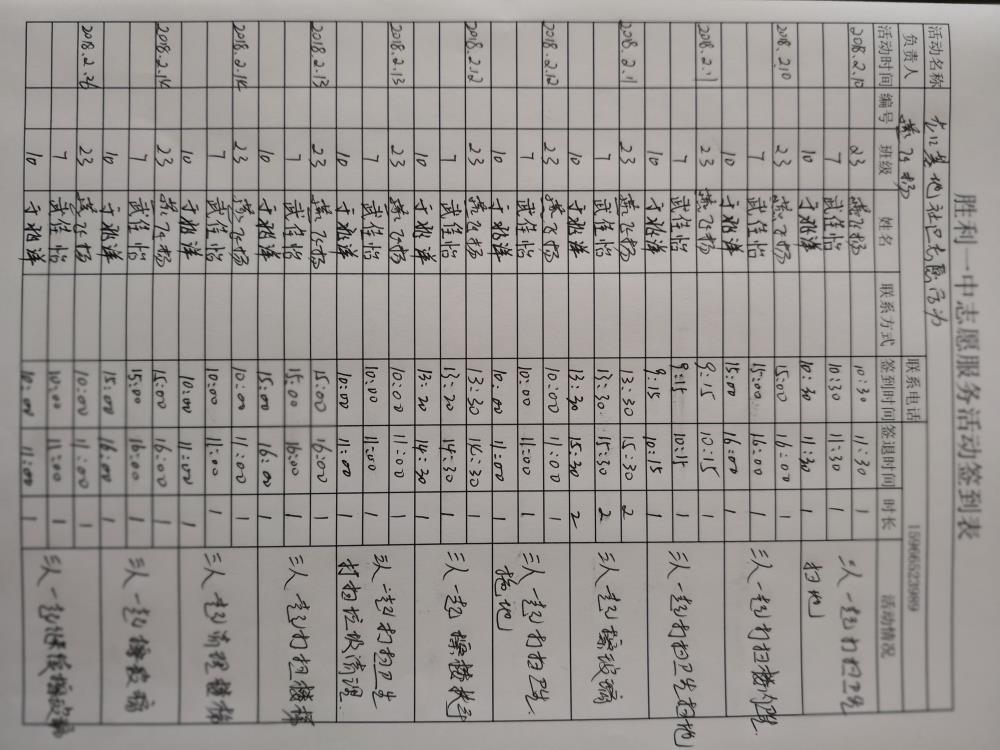 胜利一中志愿服务活动签到表
活动名称 基地社区志愿活动
负责人 燕飞扬 联系电话 15966523989
活动时间 编号 班级 姓名 联系方式 签到时间 签退时间 时长 活动情况
2018.2.10 23 燕飞扬 10:30 11:30 1 三人一起打扫卫生
7 武佳怡 10:30 11:30 1 扫地
10 于雅洋 10:30 11:30 1
2018.2.10 23 燕飞扬 15:00 16:00 1 三人一起打扫楼道
7 武佳怡 15:00 16:00 1
10 于雅洋 15:00 16:00 1
2018.2.11 23 燕飞扬 9:15 10:15 1 三人一起打扫卫生扫地
7 武佳怡 9:15 10:15 1
10 于雅洋 9:15 10:15 1
2018.2.11 23 燕飞扬 13:30 15:30 2 三人一起擦玻璃
7 武佳怡 13:30 15:30 2
10 于雅洋 13:30 15:30 2
2018.2.12 23 燕飞扬 10:00 11:00 1 三人一起打扫卫生.
7 武佳怡 10:00 11:00 1 拖地
10 于雅洋 10:00 11:00 1
2018.2.12 23 燕飞扬 13:30 14:30 1 三人一起擦楼扶手
7 武佳怡 13:20 14:30 1
10 于雅洋 13:20 14:30 1
2018.2.13 23 燕飞扬 10:00 11:00 1 三人一起打扫卫生
7 武佳怡 10:00 11:00 1 打扫垃圾清理.
10 于雅洋 10:00 11:00 1
2018.2.13 23 燕飞扬 15:00 16:00 1 三人一起打扫楼梯
7 武佳怡 15:00 16:00 1
10 于雅洋 15:00 16:00 1
2018.2.14 23 燕飞扬 10:00 11:00 1 三人一起清理楼梯
7 武佳怡 10:00 11:00 1
10 于雅洋 10:00 11:00 1
2018.2.14 23 燕飞扬 15:00 16:00 1 三人一起擦玻璃
7 武佳怡 15:00 16:00 1
10 于雅洋 15:00 16:00 1
2018.2.26 23 燕飞扬 10:00 11:00 1 三人一起继续擦玻璃
7 武佳怡 10:00 11:00 1
10 于雅洋 10:00 11:00 1